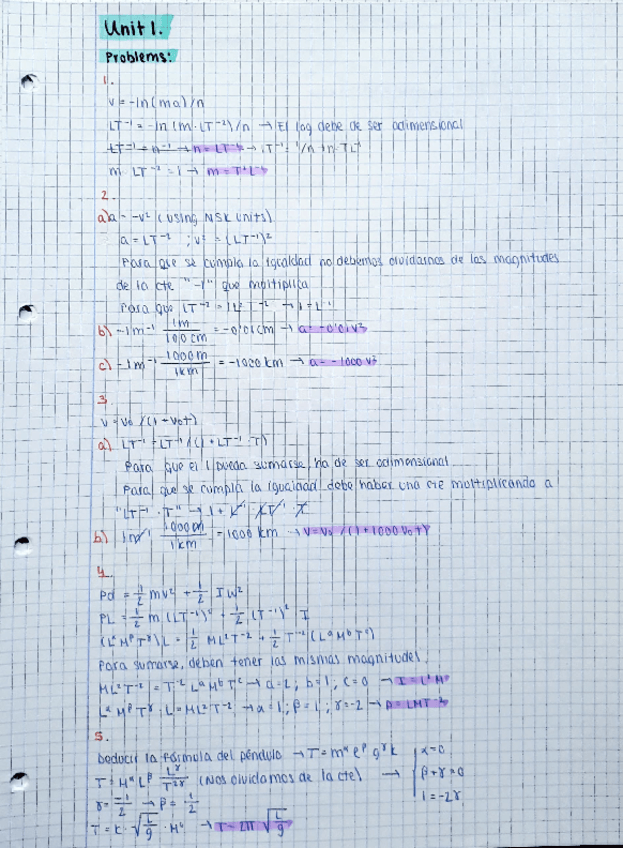 Unit 1.
Problems:
1.
v = -ln(ma)/n
LT⁻¹ = -ln(m·LT⁻²)/n → El log debe de ser adimensional
LT⁻¹ = n⁻¹ → n = LT⁻¹ → LT⁻¹ = 1/n → n = TL⁻¹
m · LT⁻² = 1 → m = T²L⁻¹
2.
a) a = -v² (using NSK units)
a = LT⁻² ; v² = (LT⁻¹)²
Para que se cumpla la igualdad no debemos olvidarnos de las magnitudes
de la cte "-1" que multiplica
Para que LT⁻² = 1L²T⁻² → 1 = L⁻¹
b) -1m⁻¹ 1m/100cm = -0'01cm → a = -0'01v²
c) -1m⁻¹ 1000m/1km = -1000 km → a = -1000 v²
3.
v = v₀/(1+v₀t)
a) LT⁻¹ = LT⁻¹/(1+LT⁻¹·T)
Para que el 1 pueda sumarse, ha de ser adimensional
Para que se cumpla la igualdad debe haber una cte multiplicando a
"LT⁻¹·T" → 1 +
b) 1m⁻¹ 1000m/1km = 1000 km → v = v₀/(1+1000v₀t)
4.
= ½ mv² + ½ Iw²
PL = ½ m (LT⁻¹)² + ½ (T⁻¹)² I
(LᵅMᵝTᵞ)L = ½ ML²T⁻² + ½ T⁻² (LᵃMᵇTᶜ)
Para sumarse, deben tener las mismas magnitudes
ML²T⁻² = T⁻² LᵃMᵇTᶜ → a=2; b=1, c=0 → I = L²M
LᵅMᵝTᵞ · L = ML²T⁻² → α=1; β=1; γ=-2 → p = LMT⁻²
5.
Deducir la fórmula del péndulo → T = mᵅ ℓᵝ gᵞ k
T = Mᵅ Lᵝ Lᵞ/T²ᵞ (Nos olvidamos de la cte) → { α=0
β+γ=0
1=-2γ
γ = -1/2 → β = 1/2
T = k · √(L/g) · M⁰ → T = 2π √(L/g)